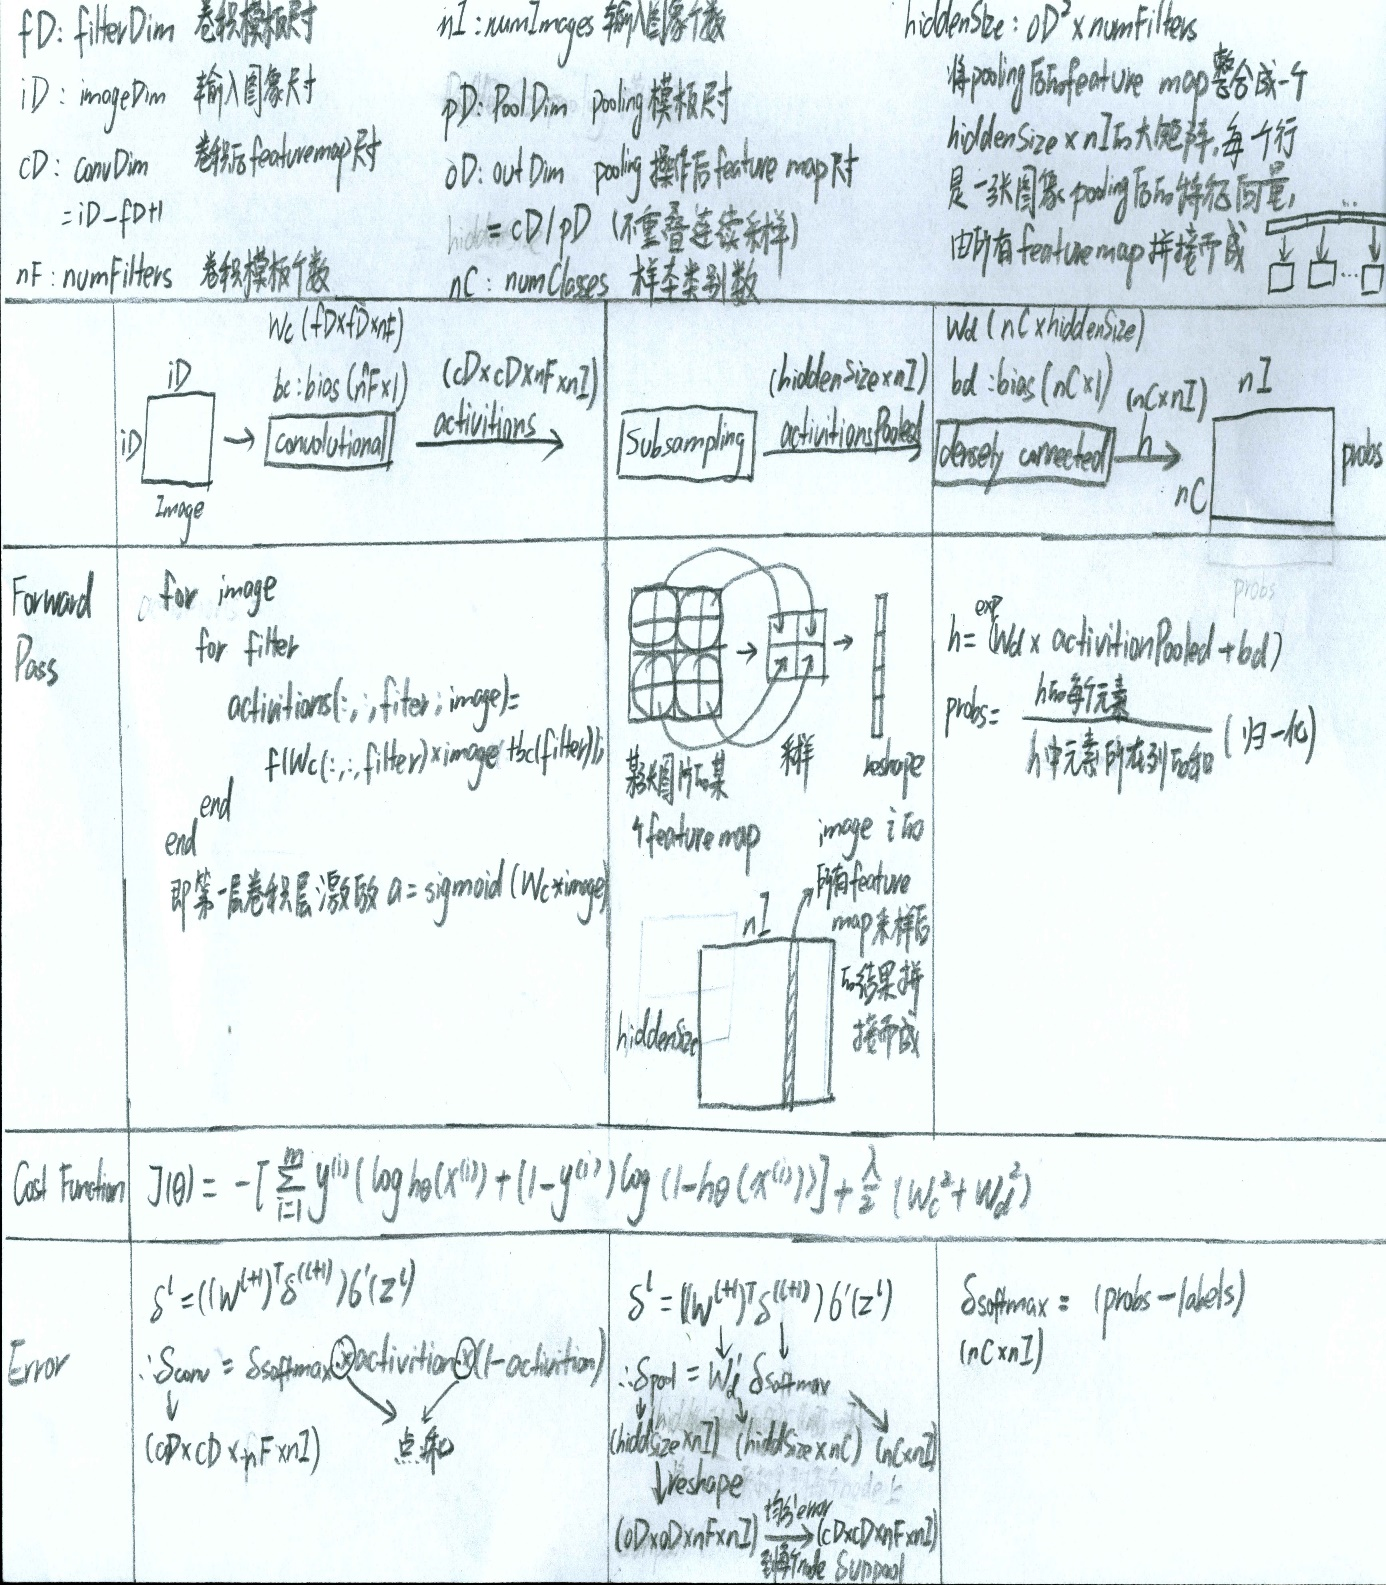 fD: filterDim 卷积模板尺寸
iD: imageDim 输入图像尺寸
cD: convDim 卷积后featuremap尺寸
=iD-fD+1
nF: numFilters 卷积模板个数
nI: numImages 输入图像个数
pD: PoolDim pooling模板尺寸
oD: outDim pooling操作后feature map尺寸
= cD/pD (不重叠连续采样)
nC: numClasses 样本类别数
hiddenSize: oD²×numFilters
将pooling后的feature map整合成一个
hiddenSize×nI的大矩阵,每个行
是一张图像pooling后的特征向量,
由所有featuremap拼接而成
iD
iD
Image
Wc (fD×fD×nF)
bc: bias (nF×1)
convolutional
(cD×cD×nF×nI)
activitions
Subsampling
(hiddenSize×nI)
activitionsPooled
Wd (nC×hiddenSize)
bd: bias (nC×1)
densely connected
(nC×nI)
h
nI
nC
probs
probs
Forward
Pass
for image
for filter
activitions(:,:,fiter,image)=
f(Wc(:,:,filter)×image+bc(filter));
end
end
即第一层卷积层激励 a=sigmoid(Wc*image)
某张图片的某
个feature map
采样
reshape
image i的
所有feature
map采样后
的结果拼
接而成
nI
hiddenSize
h=exp(Wd × activitionPooled+bd)
probs= h的每个元素
h中元素所在列的和 (归一化)
Cost Function
J(θ) = -[ Σ_{i=1}^{m} y⁽ⁱ⁾(log hθ(x⁽ⁱ⁾) + (1-y⁽ⁱ⁾) log (1-hθ(x⁽ⁱ⁾))] + λ/2 (Wc²+Wd²)
Error
δˡ=((W⁽ˡ⁺¹⁾)ᵀδ⁽ˡ⁺¹⁾)σ'(zˡ)
∴δconv = δsoftmax × activition × (1-activition)
(cD×cD×nF×nI)
点乘
δˡ=((W⁽ˡ⁺¹⁾)ᵀδ⁽ˡ⁺¹⁾)σ'(zˡ)
∴δpool = Wd' δsoftmax
(hiddsize×nI) (hiddSize×nC) (nC×nI)
reshape
(oD×oD×nF×nI) 均分error (cD×cD×nF×nI)
到每个node δunpool
δsoftmax = (probs-labels)
(nC×nI)